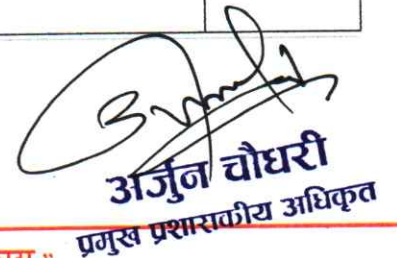 अर्जुन चौधरी
प्रमुख प्रशासकीय अधिकृत